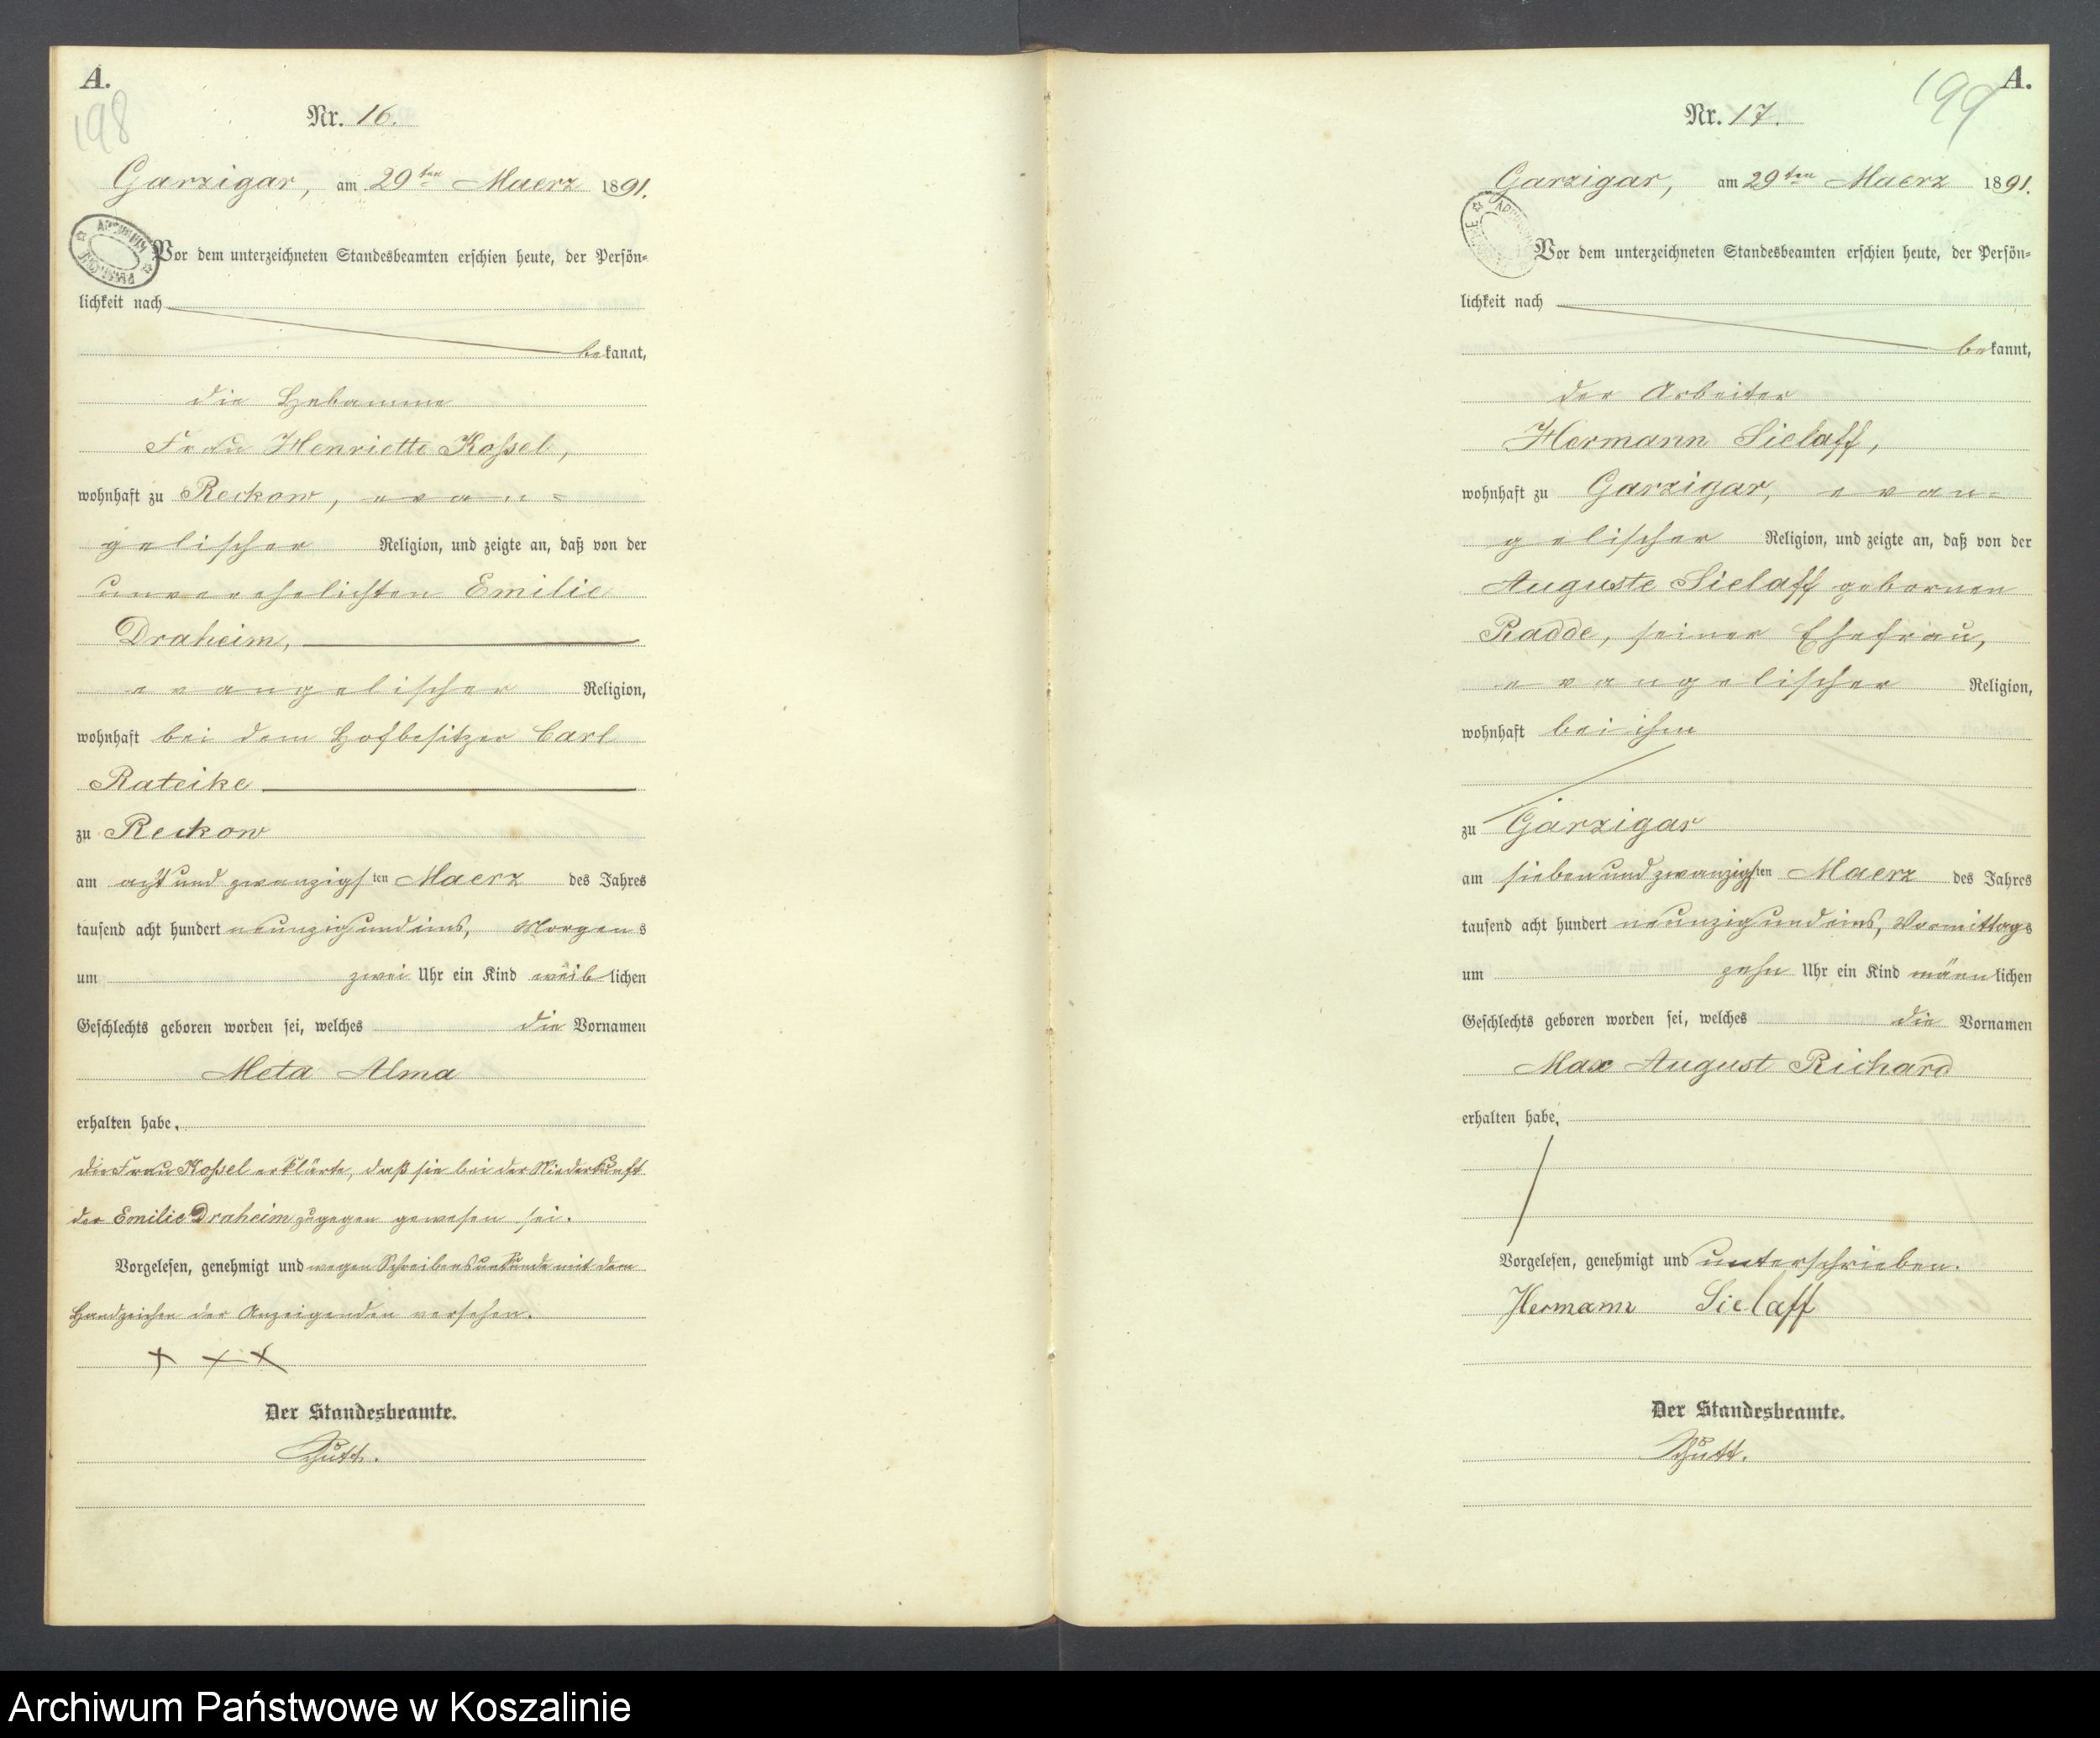 A.
198
Nr. 16.
Garzigar, am 29ten Maerz 1891.
Vor dem unterzeichneten Standesbeamten erschien heute, der Persön-
lichkeit nach
bekannt,
die Hebamme
Frau Henriette Koßel,
wohnhaft zu Reckow, evan-
gelischer Religion, und zeigte an, daß von der
unverehelichten Emilie
Draheim,
evangelischer Religion,
wohnhaft bei dem Hofbesitzer Carl
Rateike
zu Reckow
am acht und zwanzigsten Maerz des Jahres
tausend acht hundert neunzig und eins, Morgens
um zwei Uhr ein Kind weiblichen
Geschlechts geboren worden sei, welches die Vornamen
Meta Alma
erhalten habe.
die Frau Koßel erklärte, daß sie bei der Niederkunft
der Emilie Draheim zugegen gewesen sei.
Vorgelesen, genehmigt und wegen Schreibensunkunde mit dem
Handzeichen der Anzeigenden versehen.
+ + +
Der Standesbeamte.
A.
199
Nr. 17.
Garzigar, am 29ten Maerz 1891.
Vor dem unterzeichneten Standesbeamten erschien heute, der Persön-
lichkeit nach
bekannt,
der Arbeiter
Hermann Sielaff,
wohnhaft zu Garzigar, evan-
gelischer Religion, und zeigte an, daß von der
Auguste Sielaff gebornen
Radde, seiner Ehefrau,
evangelischer Religion,
wohnhaft bei ihm
zu Garzigar
am sieben und zwanzigsten Maerz des Jahres
tausend acht hundert neunzig und eins, Vormittags
um zehn Uhr ein Kind männlichen
Geschlechts geboren worden sei, welches die Vornamen
Max August Richard
erhalten habe.
Vorgelesen, genehmigt und unterschrieben.
Hermann Sielaff
Der Standesbeamte.
Archiwum Państwowe w Koszalinie